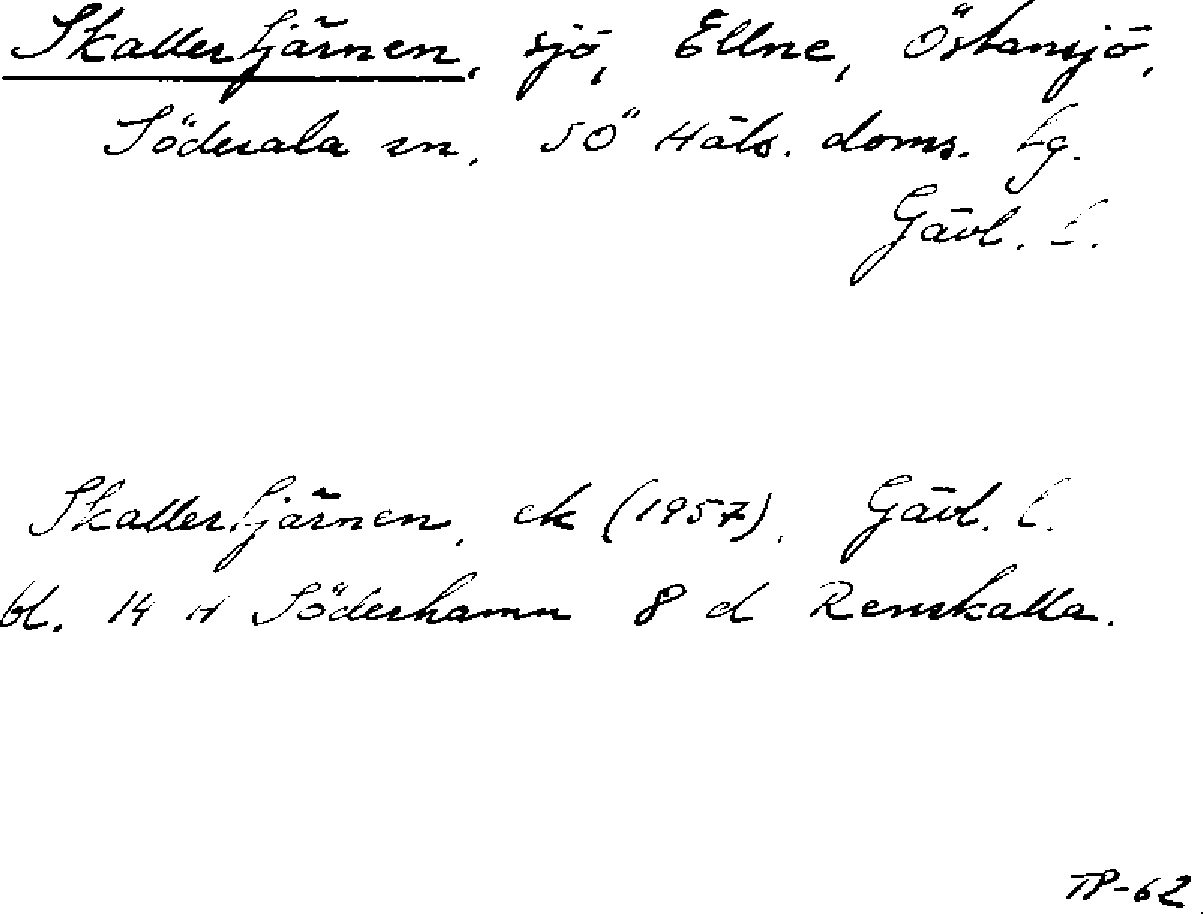 Skallertjärnen, sjö, Ellne, Östansjö,
Söderala sn, SÖ Häls. doms. Lg.
Gävl. l.
Skallertjärnen, ek (1957), Gävl. l.
bl. 14 H Söderhamn 8 d Renskalla.
TP-62